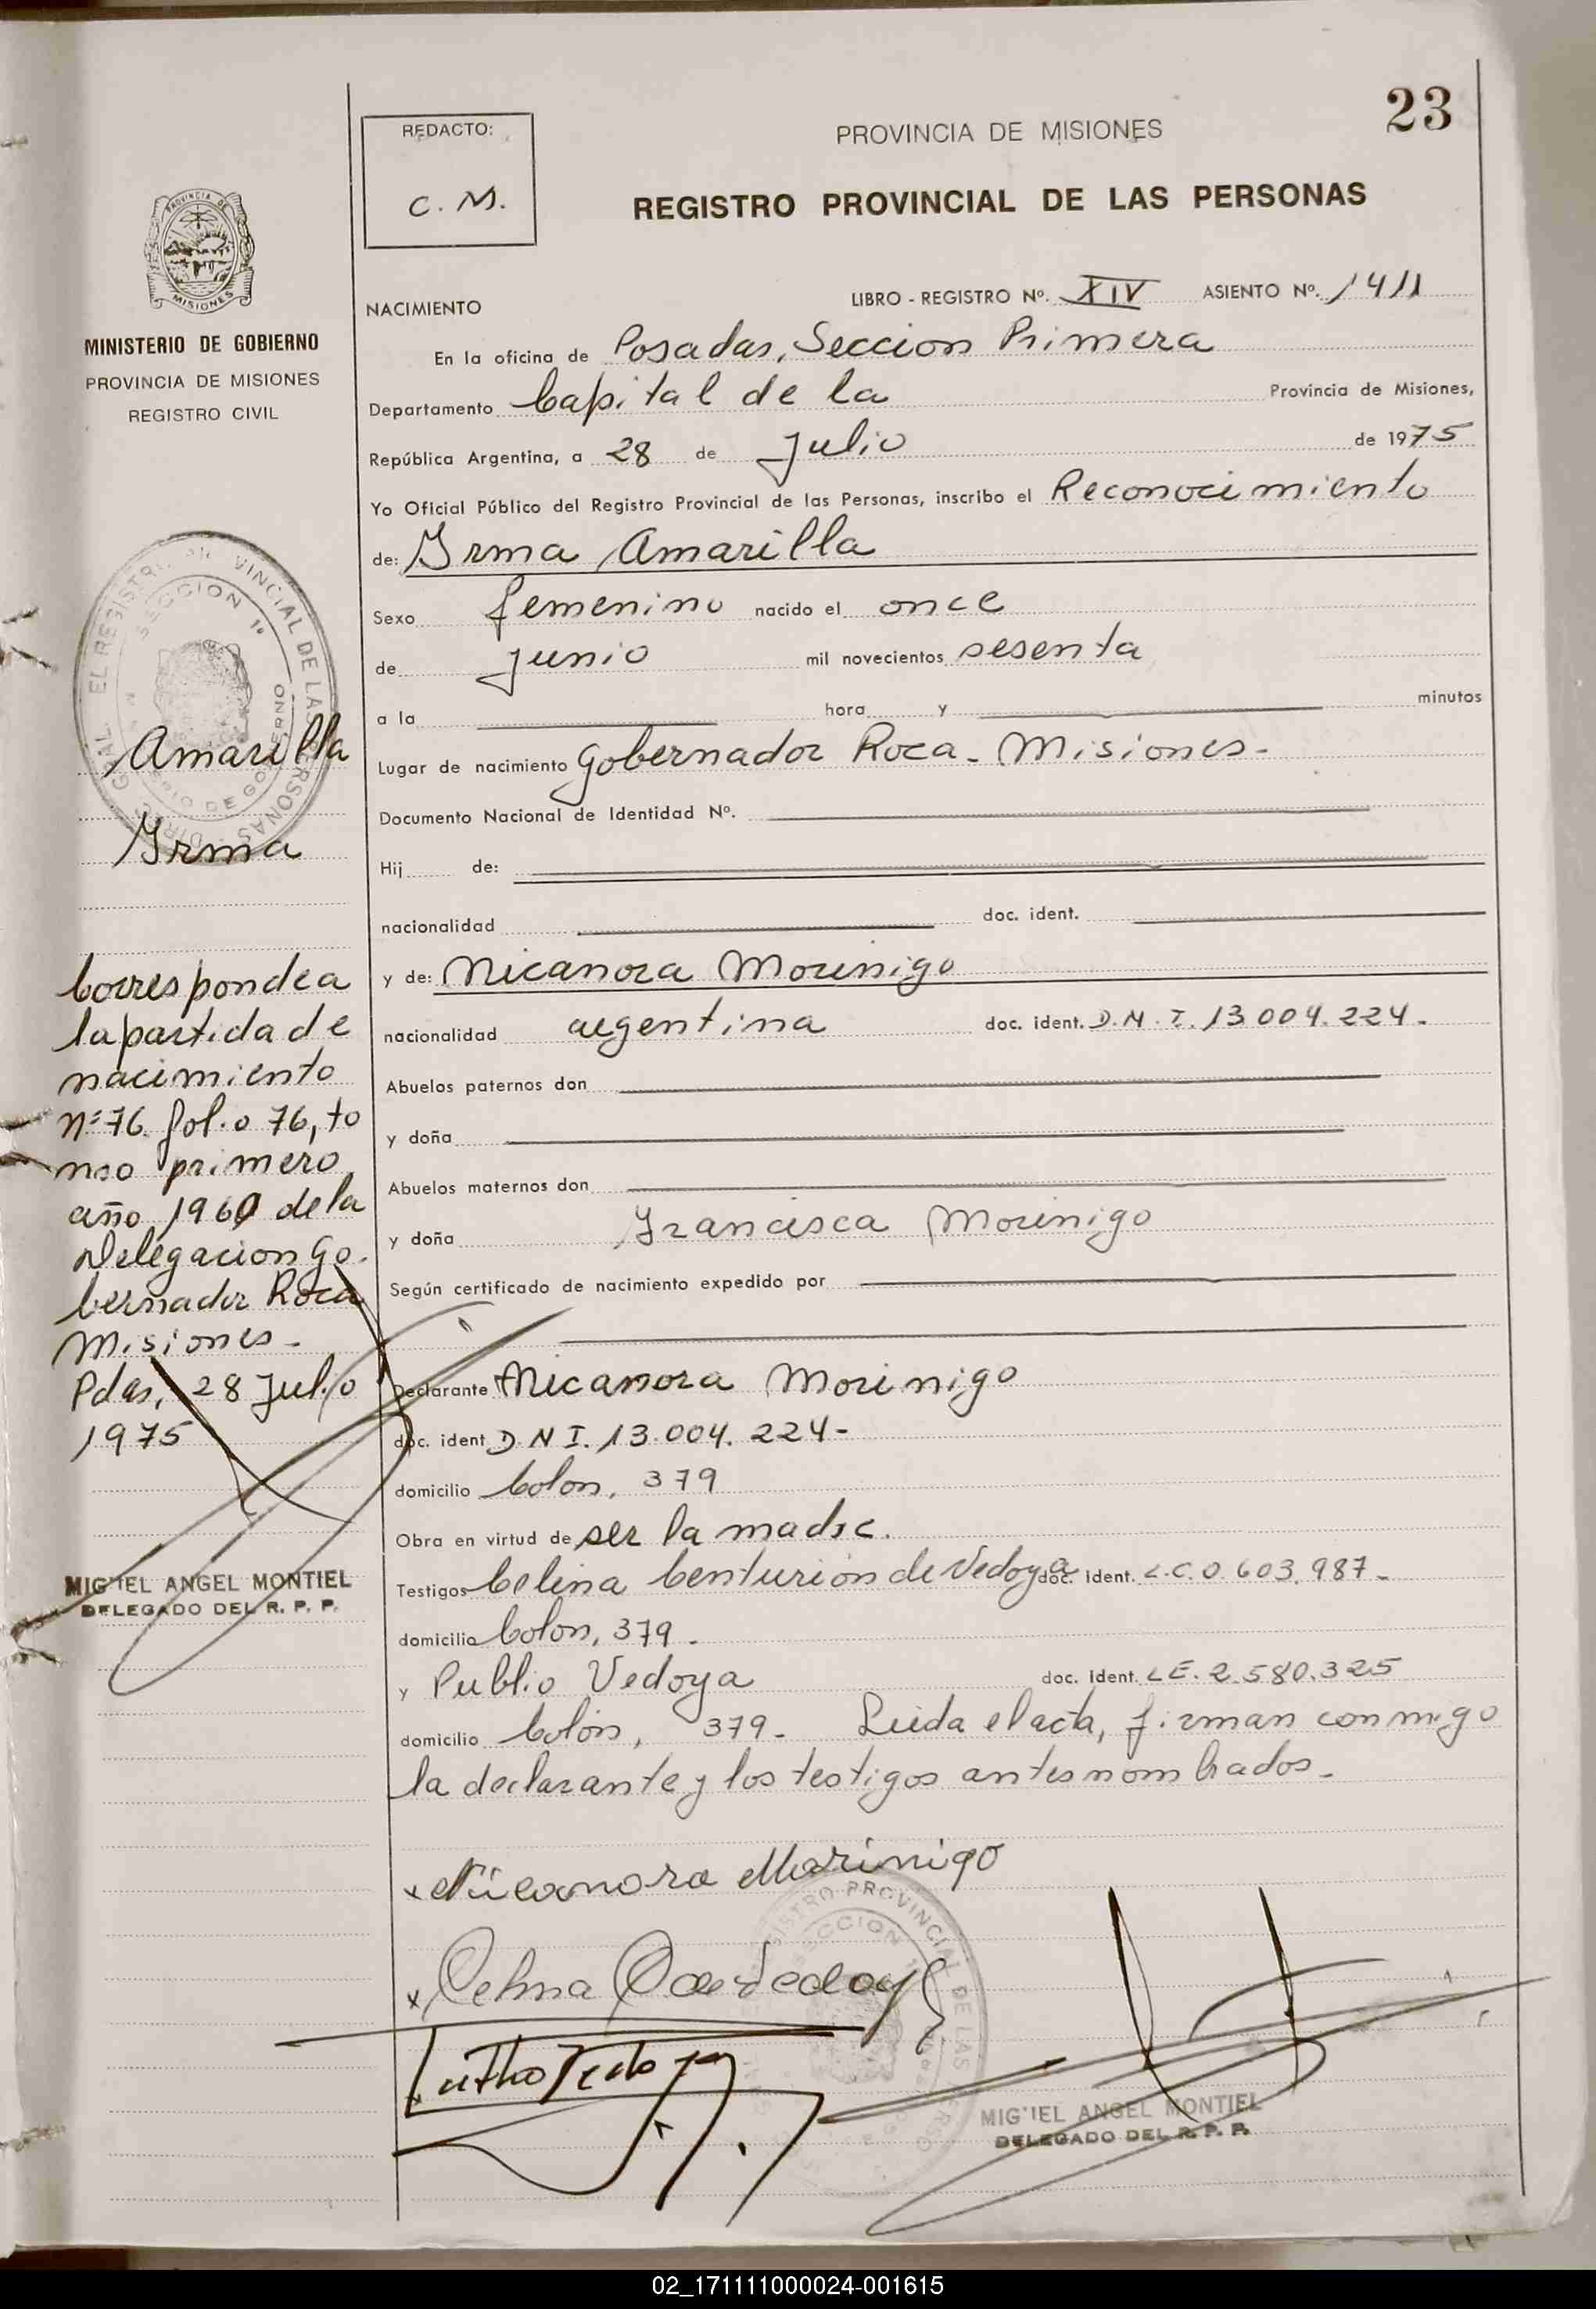 23
REDACTO:
C. M.
PROVINCIA DE MISIONES
REGISTRO PROVINCIAL DE LAS PERSONAS
PROVINCIA DE
MISIONES
MINISTERIO DE GOBIERNO
PROVINCIA DE MISIONES
REGISTRO CIVIL
NACIMIENTO
LIBRO - REGISTRO Nº. XIV ASIENTO Nº. 1411
En la oficina de Posadas, Seccion Primera
Departamento Capital de la Provincia de Misiones,
República Argentina, a 28 de Julio de 1975
Yo Oficial Público del Registro Provincial de las Personas, inscribo el Reconocimiento
de: Irma Amarilla
Sexo femenino nacido el once
de junio mil novecientos sesenta
a la hora y minutos
Lugar de nacimiento Gobernador Roca - Misiones -
Documento Nacional de Identidad Nº.
Hij de:
nacionalidad doc. ident.
y de: Nicanora Morinigo
nacionalidad argentina doc. ident. D.N.I. 13.004.224 -
Abuelos paternos don
y doña
Abuelos maternos don
y doña Francisca Morinigo
Según certificado de nacimiento expedido por
Declarante Nicanora Morinigo
doc. ident D.N.I. 13.004.224 -
domicilio Colon, 379
Obra en virtud de ser la madre.
Testigos Celina Centurión de Vedoya doc. ident. L.C. 0.603.987 -
domicilio Colon, 379 -
y Publio Vedoya doc. ident. L.E. 2.580.325
domicilio Colón, 379 - Leida el acta, firman conmigo
la declarante y los testigos antes nombrados -
x Nicanora Marinigo
MIGUEL ANGEL MONTIEL
DELEGADO DEL R. P. P.
Amarilla
Irma
Corresponde a
la partida de
nacimiento
nº 76 folio 76, to
mo primero
año 1960 de la
Delegacion Go-
bernador Roca
Misiones -
Pdas, 28 Julio
1975
MIGUEL ANGEL MONTIEL
DELEGADO DEL R. P. P.
02_171111000024-001615